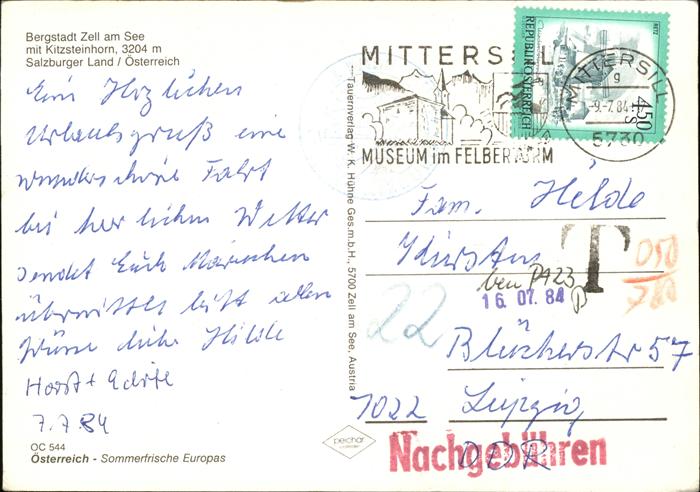 Bergstadt Zell am See
mit Kitzsteinhorn, 3204 m
Salzburger Land / Österreich
Ein Herzlichen
Urlaubsgruß eine
wunderschöne Fahrt
bei herlichen Wetter
sendet Euch
übermittelt bitte allen
Grüsse liebe Hilde
Horst +
7.7.84
OC 544
Österreich - Sommerfrische Europas
Tauernverlag W. K. Hühne Ges.m.b.H., 5700 Zell am See, Austria
MITTERSILL
MUSEUM im FELBERTURM
REPUBLIK ÖSTERREICH
RETZ
S 4.50
MITTERSILL
g
-9.-7.84
5730
Fam. Hilde
Kürsten
T
050
780
16.07.84
22
Blücherstr 57
7022 Leipzig
DDR
Nachgebühren